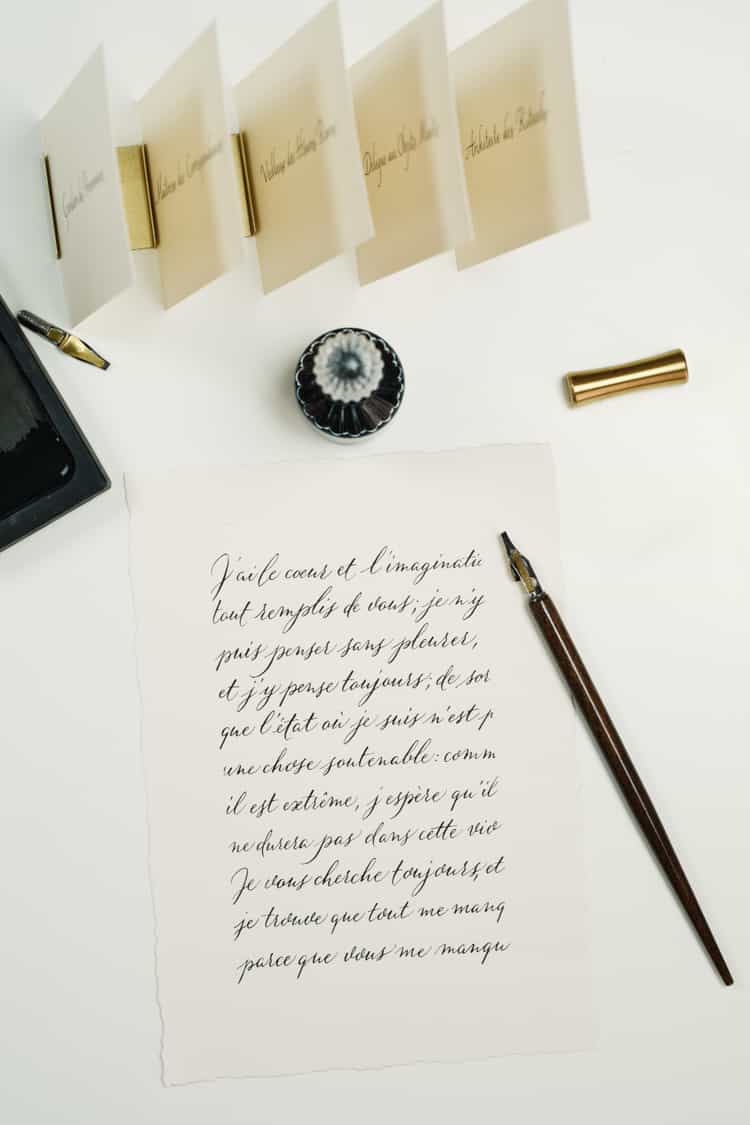 Architecte des Rituels
J'ai le coeur et l'imaginatio
tout remplis de vous; je n'y
puis penser sans pleurer,
et j'y pense toujours; de sor
que l'état où je suis n'est p
une chose soutenable: comm
il est extrême, j'espère qu'il
ne durera pas dans cette vio
Je vous cherche toujours, et
je trouve que tout me manq
parce que vous me manqu